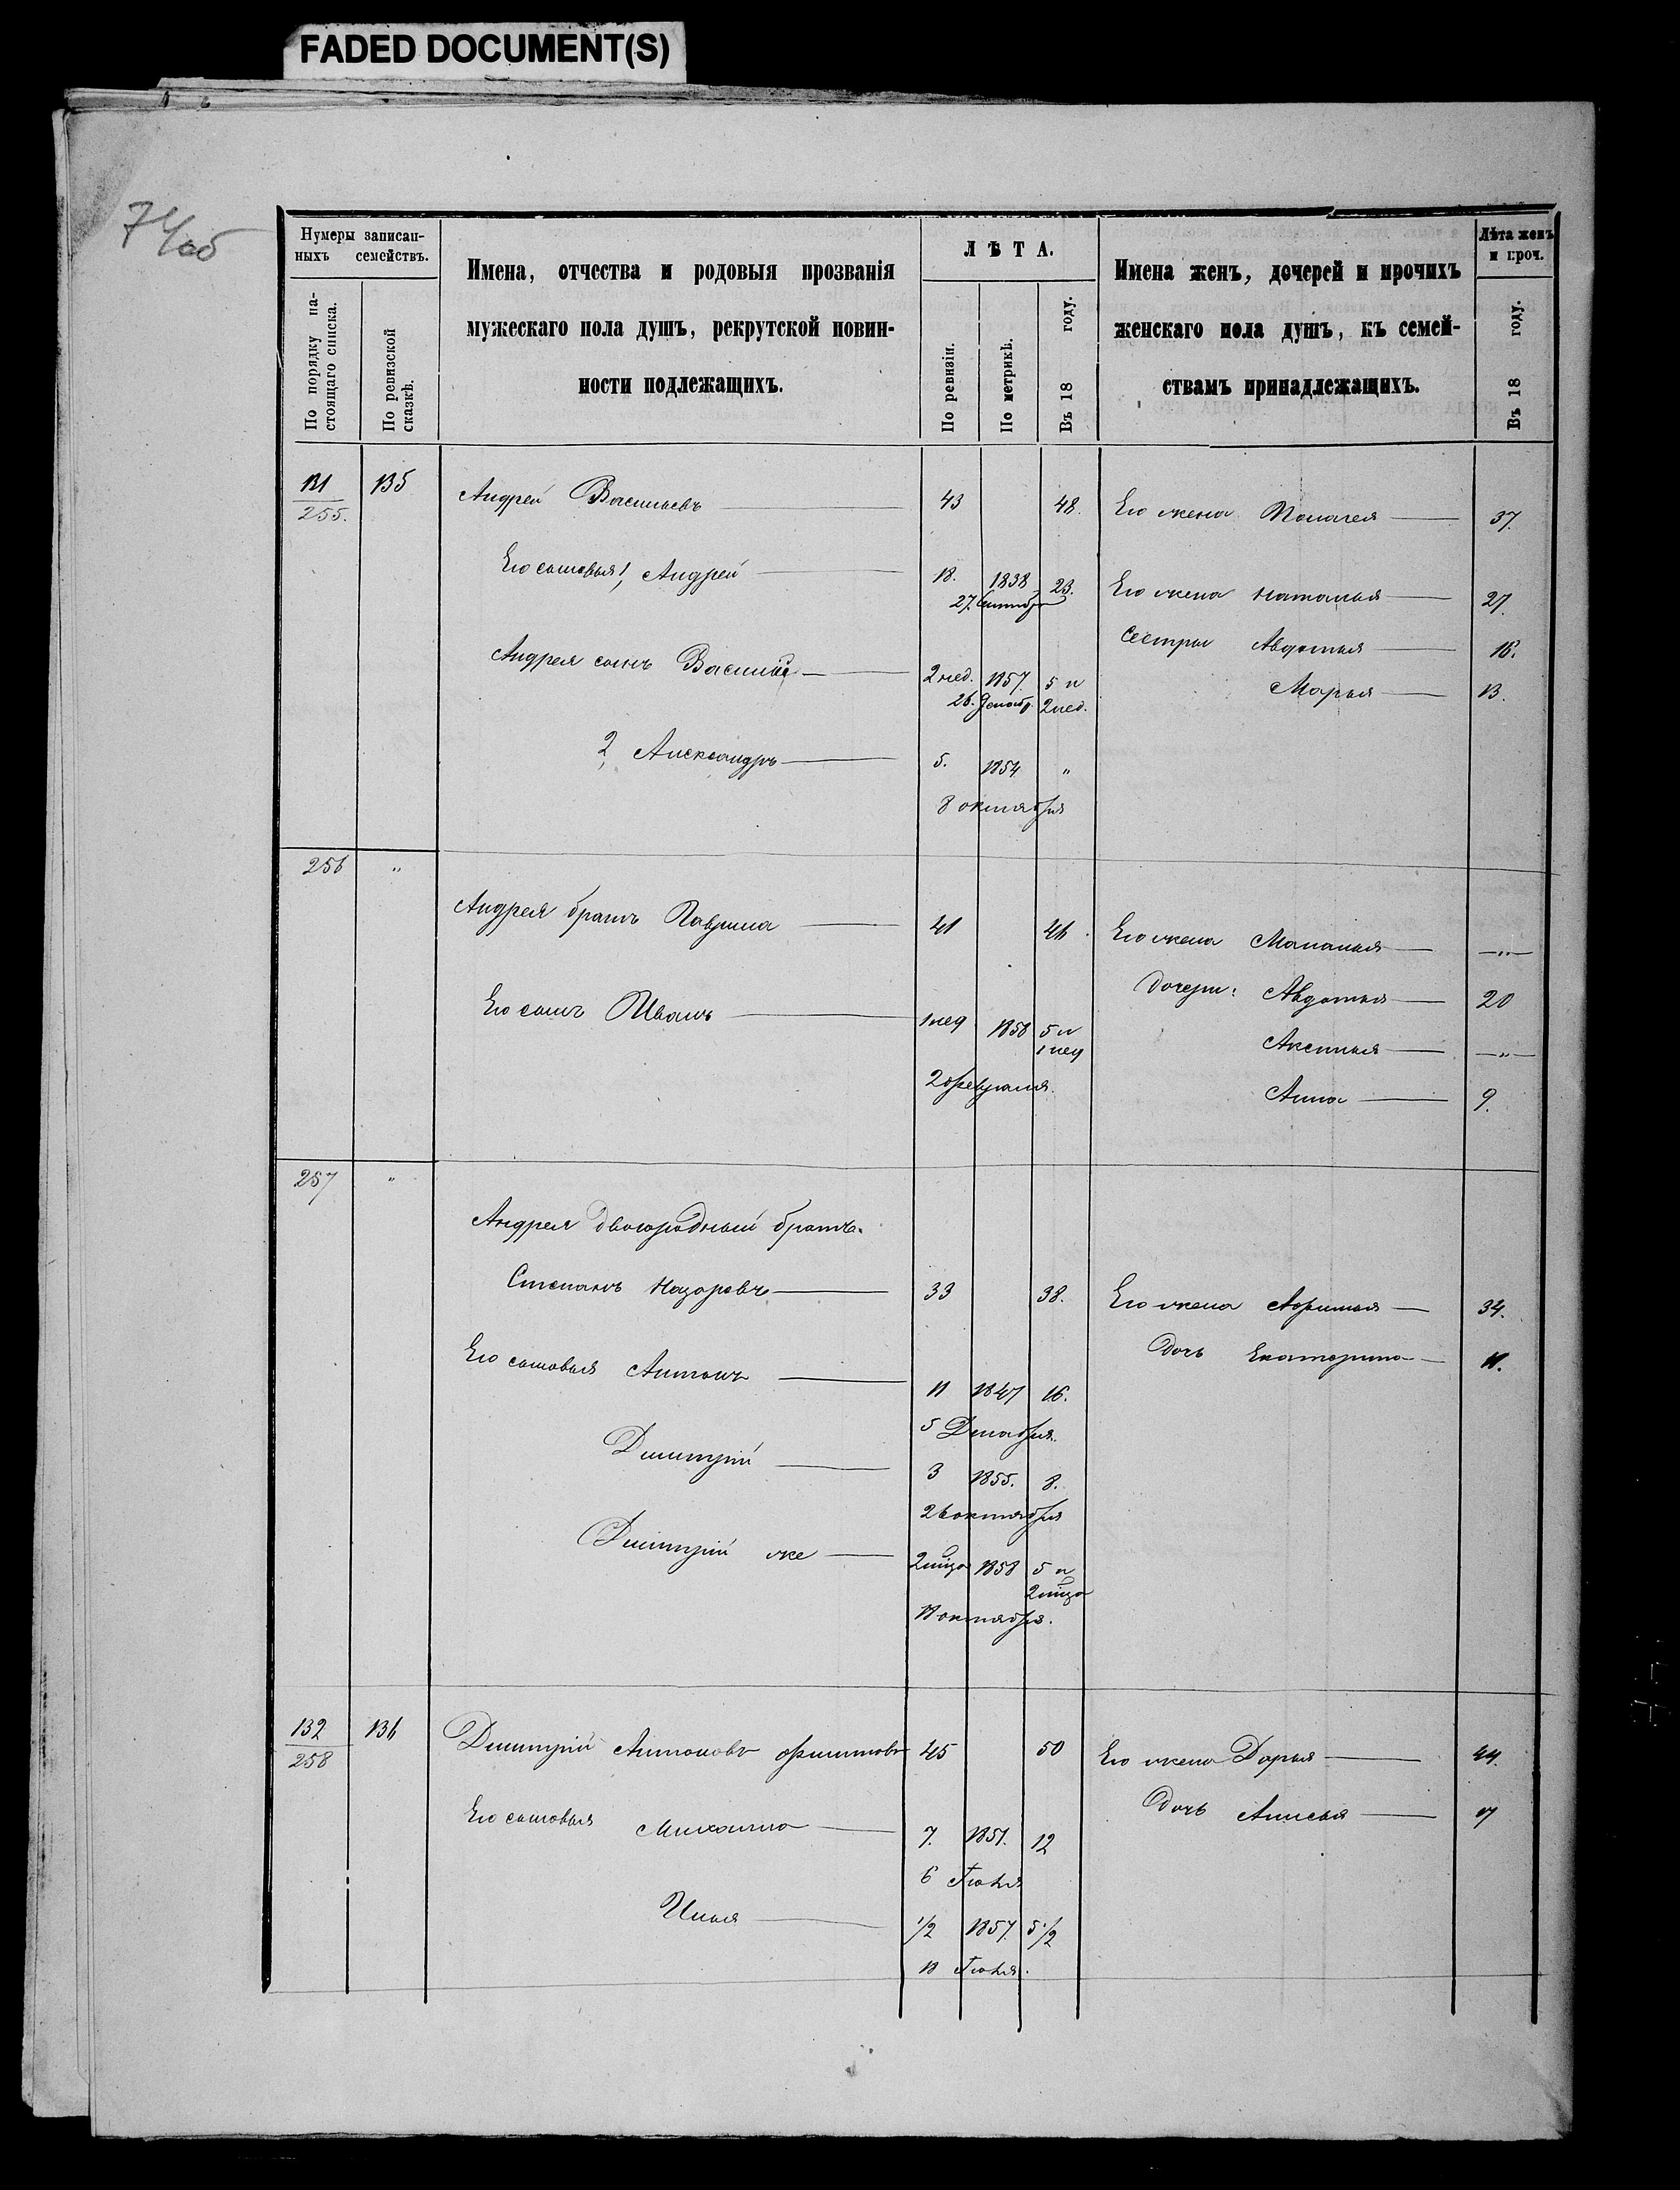 FADED DOCUMENT(S)
74об
Нумеры записан-
ныхъ семействъ.
По порядку на-
стоящаго списка.
По ревизской
сказкѣ.
Имена, отчества и родовыя прозванія
мужескаго пола душъ, рекрутской повин-
ности подлежащихъ.
ЛѢТА.
По ревизіи.
По метрикѣ.
Въ 18 году.
Имена женъ, дочерей и прочихъ
женскаго пола душъ, къ семей-
ствамъ принадлежащихъ.
Лѣта женъ
и проч.
Въ 18 году.
131 135 Андрей Васильевъ 43 48. Его жена Палагея 37.
255.
Его сыновья 1, Андрей 18. 1838 23. Его жена Наталья 27.
27. Сентября
Сестры Авдотья 16.
Андрея сынъ Василій 2 нед. 1857. 5 и Марья 13.
26. Декабр. 2 нед.
2, Александръ 5. 1854 "
8 октября
256 "
Андрея братъ Гаврила 41 46. Его жена Маланья —"—
Дочери: Авдотья 20
Его сынъ Иванъ 1 нед 1858 5 и
1 нед
Аксинья —"—
2 февраля.
Анна 9.
257 "
Андрея двоюродный братъ.
Степанъ Назаровъ 33 38. Его жена Афимья 34.
Дочь Екатерина 11.
Его сыновья Антонъ 11 1847 16.
5 Декабря.
Дмитрій 3 1855. 8.
26 октября
Дмитрій же 2 мѣца 1858 5 и
2 мѣца
11 октября.
132 136 Дмитрій Антоновъ 45 50 Его жена Дарья 44.
258
Дочь Анисья 17
Его сыновья Михаила 7. 1851. 12
6 Июня
Илья 1/2 1857. 5 1/2
11 Июня.